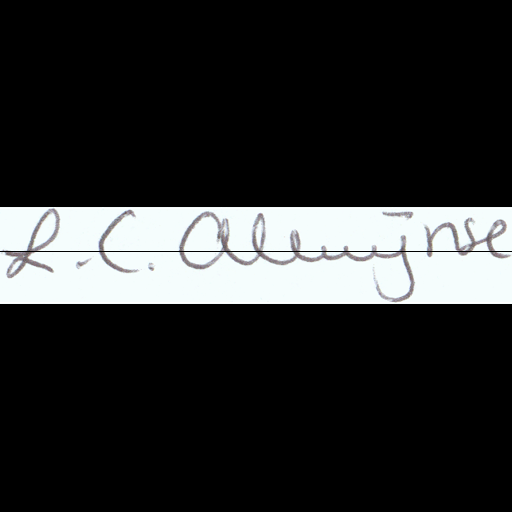 L.C. Allewijnse